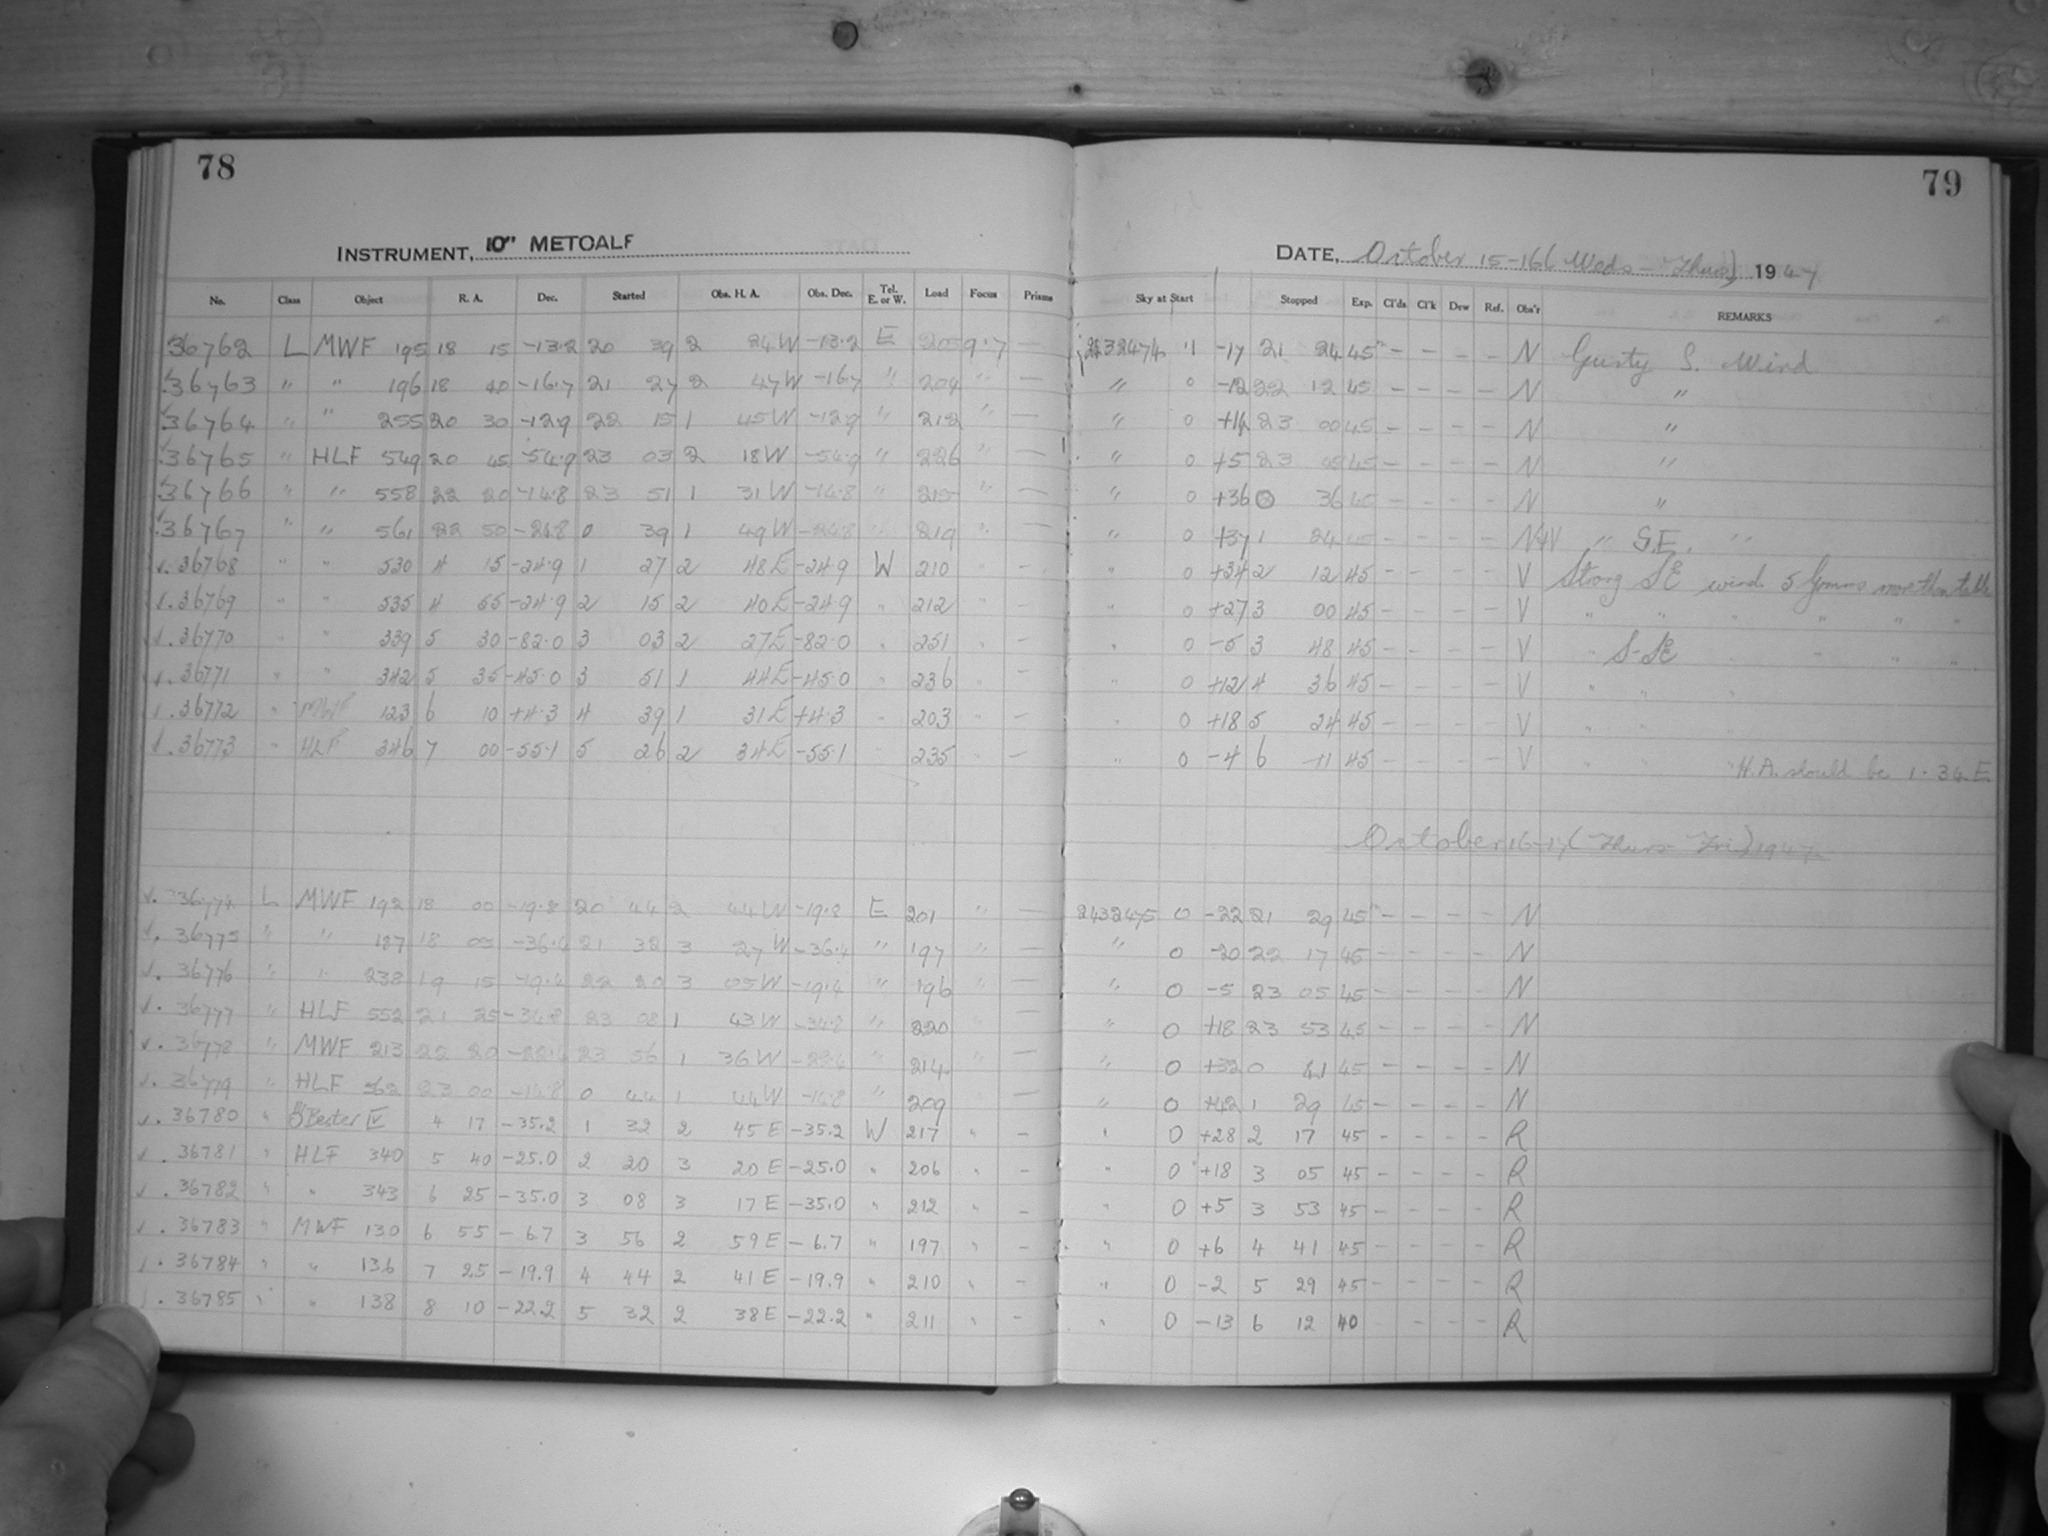 78
INSTRUMENT, 10" METCALF
No. Class Object R. A. Dec. Started Obs. H. A. Obs. Dec. Tel. E. or W. Load Focus Prisms
36762 L MWF 195 18 15 -13.2 20 39 2 24 W -13.2 E 205 9.7 —
36763 " " 196 18 40 -16.7 21 27 2 47 W -16.7 " 204 " —
36764 " " 255 20 30 -12.9 22 15 1 45 W -12.9 " 212 " —
36765 " HLF 549 20 45 -54.9 23 03 2 18 W -54.9 " 226 " —
36766 " " 558 22 20 -14.8 23 51 1 31 W -14.8 " 215 " —
36767 " " 561 22 50 -24.8 0 39 1 49 W -24.8 " 219 " —
36768 " " 530 4 15 -24.9 1 27 2 48 E -24.9 W 210 " -
36769 " " 535 4 55 -24.9 2 15 2 40 E -24.9 " 212 " -
36770 " " 339 5 30 -82.0 3 03 2 27 E -82.0 " 251 " -
36771 " " 342 5 35 -45.0 3 51 1 44 E -45.0 " 236 " -
36772 " MWF 123 6 10 +4.3 4 39 1 31 E +4.3 " 203 " -
36773 " HLF 346 7 00 -55.1 5 26 2 34 E -55.1 " 235 " -
36774 L MWF 192 18 00 -19.8 20 44 2 44 W -19.8 E 201 " —
36775 " " 187 18 05 -36.4 21 32 3 27 W -36.4 " 197 " —
36776 " " 238 19 15 -19.4 22 20 3 05 W -19.4 " 196 " —
36777 " HLF 552 21 25 -34.8 23 08 1 43 W -34.8 " 220 " —
36778 " MWF 213 22 20 -22.4 23 56 1 36 W " 214 " —
36779 " HLF 562 23 00 -14.8 0 44 1 44 W -14.8 " 209 " —
36780 " Bester IV 4 17 -35.2 1 32 2 45 E -35.2 W 217 " -
36781 " HLF 340 5 40 -25.0 2 20 3 20 E -25.0 " 206 " -
36782 " " 343 6 25 -35.0 3 08 3 17 E -35.0 " 212 " -
36783 " MWF 130 6 55 -6.7 3 56 2 59 E -6.7 " 197 " -
36784 " " 136 7 25 -19.9 4 44 2 41 E -19.9 " 210 " -
36785 " " 138 8 10 -22.2 5 32 2 38 E -22.2 " 211 " -
79
DATE, October 15-16 (Weds - Thurs) 1947
Sky at Start Stopped Exp. Cl'ds Cl'k Dew Ref. Obs'r REMARKS
2432474 1 -17 21 24 45 - - - - N Gusty S. Wind
" 0 -12 22 12 45 - - - - N "
" 0 +14 23 00 45 - - - - N "
" 0 +5 23 45 - - - - N "
" 0 +36 0 36 45 - - - - N "
" 0 +37 1 24 45 - - - - " S.E. "
" 0 +34 2 12 45 - - - - V Strong SE wind 5 more than table
" 0 +27 3 00 45 - - - - V " " " " " "
" 0 -5 3 48 45 - - - - V " S-SE " " "
" 0 +12 4 36 45 - - - - V " " "
" 0 +18 5 24 45 - - - - V " " "
" 0 -4 6 11 45 - - - - V " " " H.A. should be 1-34 E
October 16-17 (Thurs - Fri) 1947
2432475 0 -22 21 29 45 - - - - N
" 0 -20 22 17 45 - - - - N
" 0 -5 23 05 45 - - - - N
" 0 +18 23 53 45 - - - - N
" 0 +32 0 41 45 - - - - N
" 0 +42 1 29 45 - - - - N
" 0 +28 2 17 45 - - - - R
" 0 +18 3 05 45 - - - - R
" 0 +5 3 53 45 - - - - R
" 0 +6 4 41 45 - - - - R
" 0 -2 5 29 45 - - - - R
" 0 -13 6 12 40 - - - R